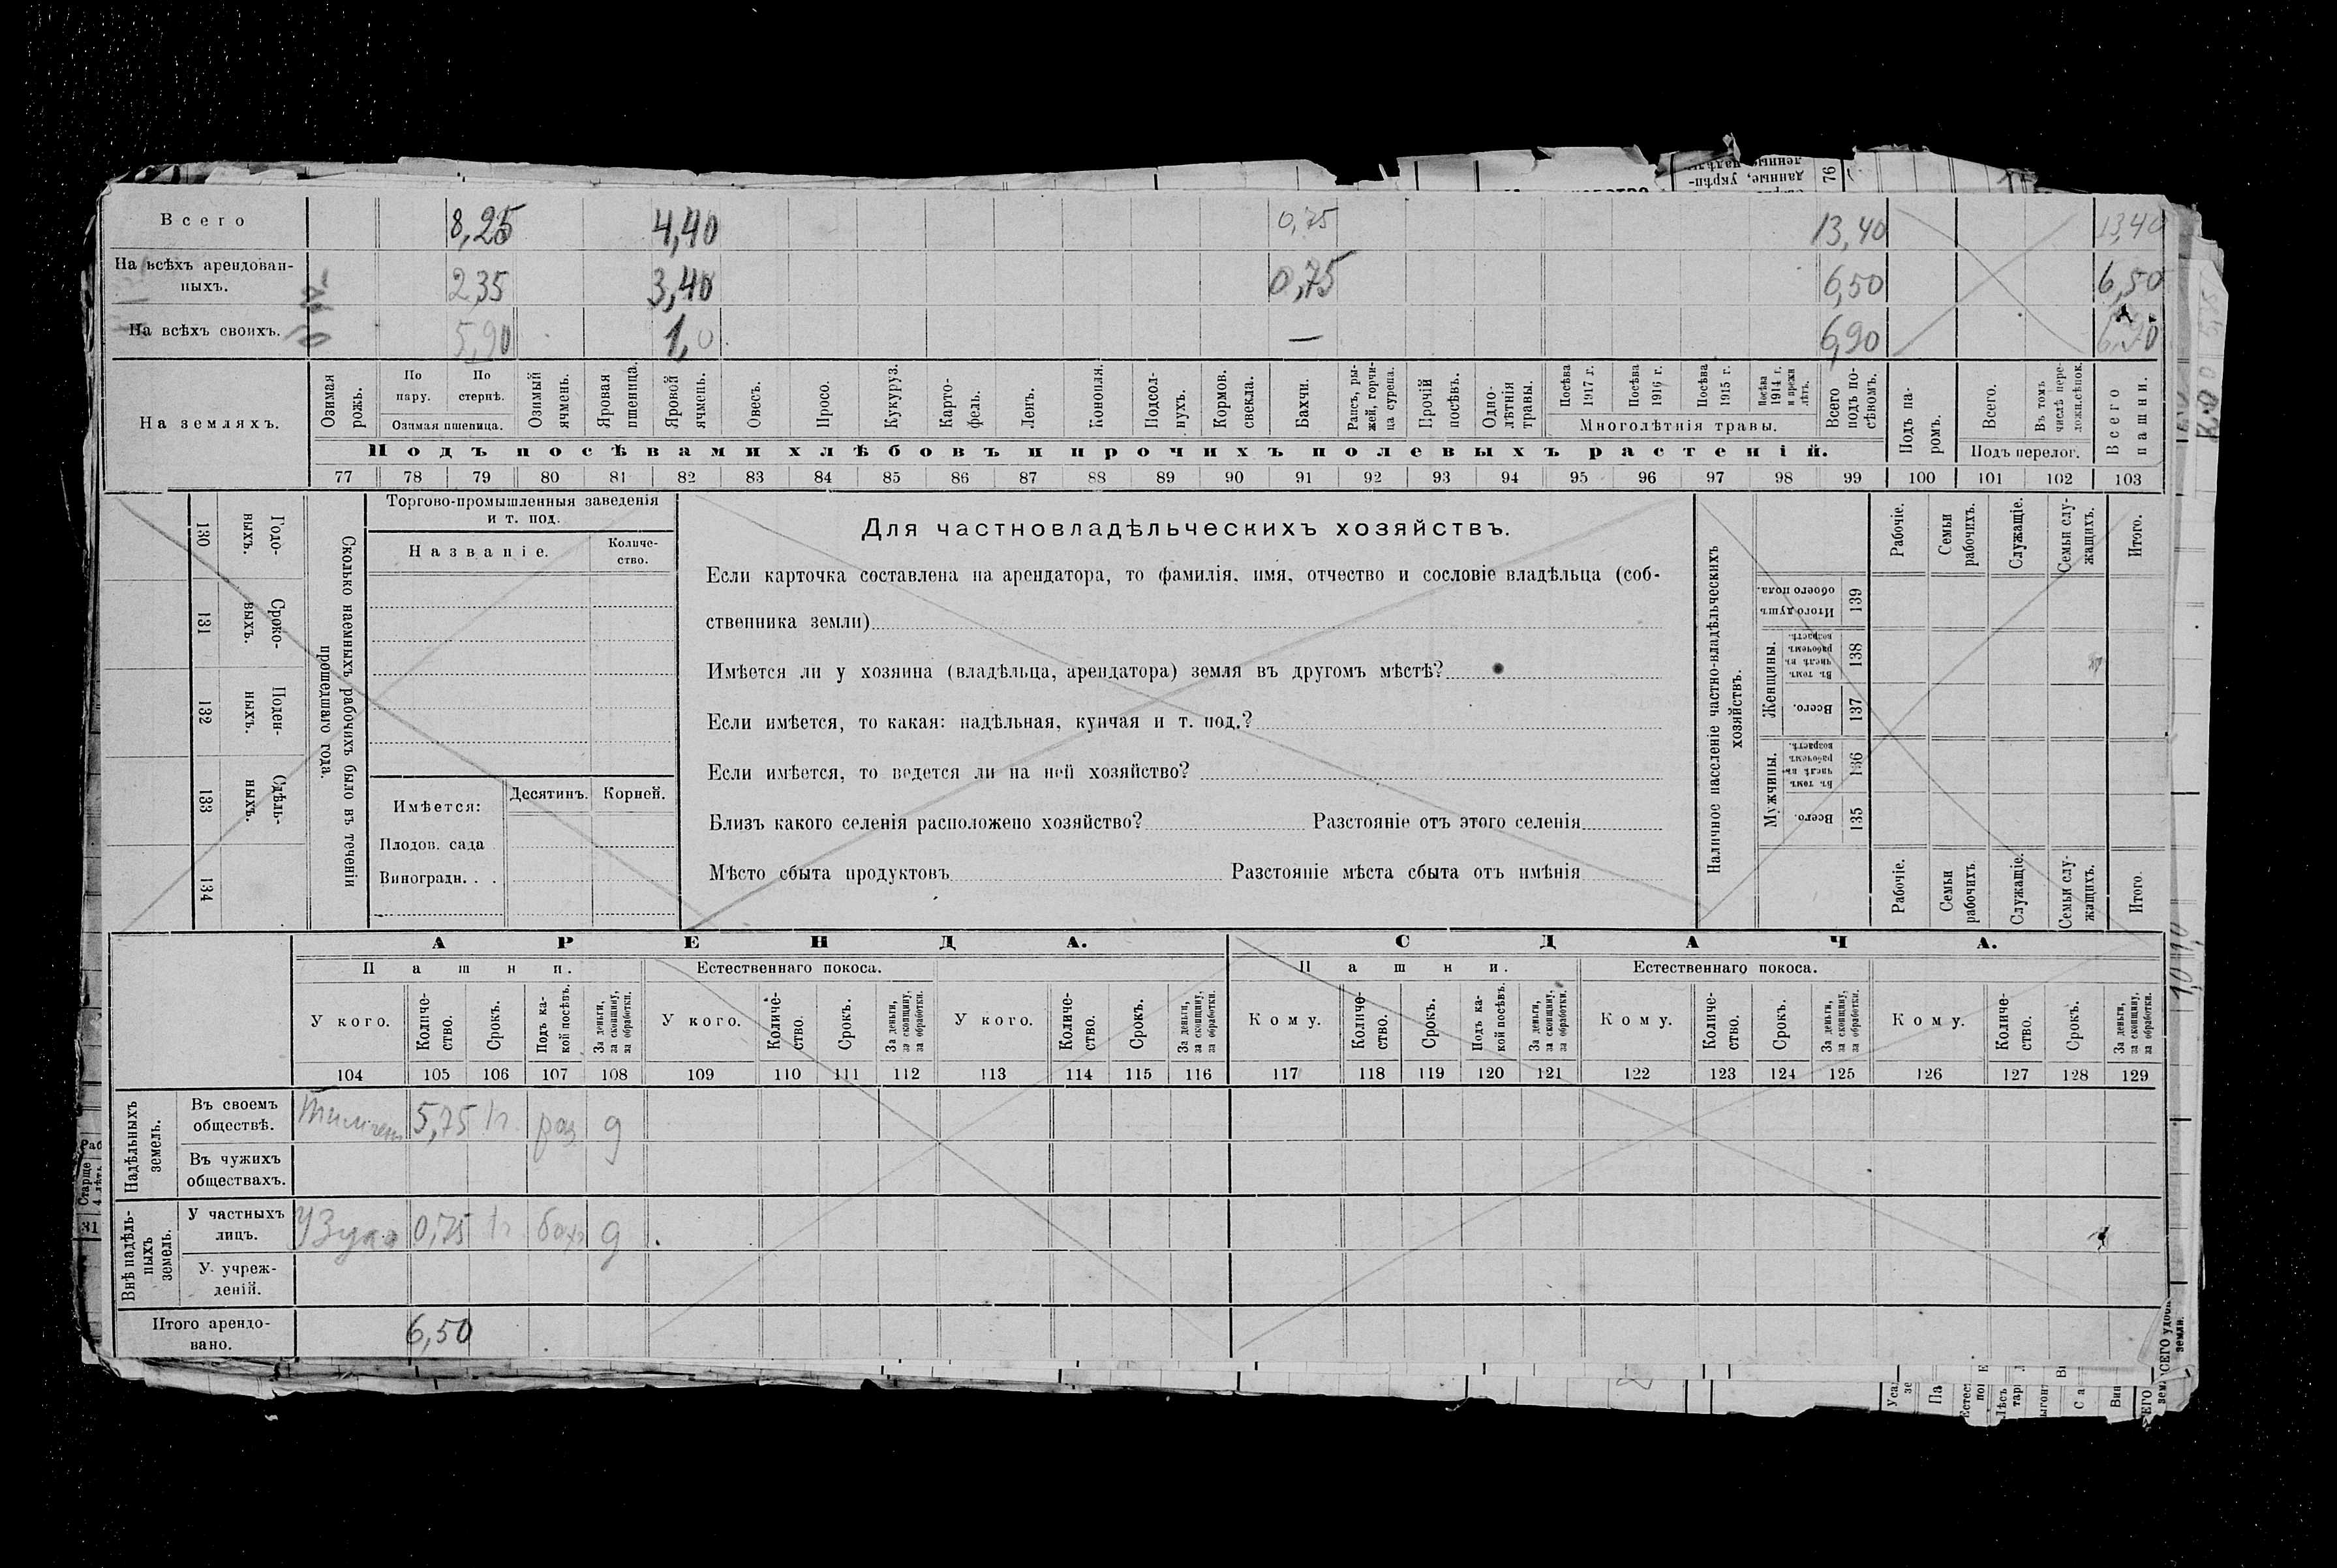 Всего 8,25 4,40 0,75 13,40 13,40
На всѣхъ арендован-
ныхъ. 2,35 3,40 0,75 6,50 6,50
На всѣхъ своихъ. 5,90 1,0 — 6,90 6,90
На земляхъ.
Озимая рожь.
По пару.
По стернѣ.
Озимая пшеница.
Озимый ячмень.
Яровая пшеница.
Яровой ячмень.
Овесъ.
Просо.
Кукуруз.
Карто-
фель.
Ленъ.
Конопля.
Подсол-
нухъ.
Кормов. свекла.
Бахчи.
Рапсъ, ры-
жей, горчи-
ца сурепа.
Прочій посѣвъ.
Одно-
лѣтнія травы.
Посѣва 1917 г.
Посѣва 1916 г.
Посѣва 1915 г.
Посѣва 1914 г. и прежн лѣтъ.
Многолѣтнія травы.
Всего подъ по-
сѣвомъ.
Подъ па-
ромъ.
Всего.
Въ томъ числѣ пере-
ложн.сѣнок.
Подъ перелог.
Всего пашни.
Подъ посѣвами хлѣбовъ и прочихъ полевыхъ растеній.
77 78 79 80 81 82 83 84 85 86 87 88 89 90 91 92 93 94 95 96 97 98 99 100 101 102 103
Сколько наемныхъ рабочихъ было въ теченіи
прошедшаго года.
Годо-
выхъ.
130
Сроко-
выхъ.
131
Поден-
ныхъ.
132
Сдѣль-
ныхъ.
133
134
Торгово-промышленныя заведенія
и т. под.
Названіе.
Количе-
ство.
Имѣется:
Десятинъ.
Корней.
Плодов. сада
Виноградн. . .
Для частновладѣльческихъ хозяйствъ.
Если карточка составлена на арендатора, то фамилія, имя, отчество и сословіе владѣльца (соб-
ственника земли)
Имѣется ли у хозяина (владѣльца, арендатора) земля въ другомъ мѣстѣ?
Если имѣется, то какая: надѣльная, купчая и т. под.?
Если имѣется, то ведется ли на ней хозяйство?
Близъ какого селенія расположено хозяйство? Разстояніе отъ этого селенія
Мѣсто сбыта продуктовъ Разстояніе мѣста сбыта отъ имѣнія
Наличное населеніе частно-владѣльческихъ
хозяйствъ.
Рабочіе.
Семьи рабочихъ.
Служащіе.
Семьи слу-
жащихъ.
Итого.
Итого душъ обоего пола.
139
Женщины.
Въ томъ числѣ въ рабочемъ возрастѣ.
138
Всего.
137
Мужчины.
Въ томъ числѣ въ рабочемъ возрастѣ.
136
Всего.
135
Рабочіе.
Семьи рабочихъ.
Служащіе.
Семьи слу-
жащихъ.
Итого.
АРЕНДА. СДАЧА.
Пашни. Естественнаго покоса. Пашни. Естественнаго покоса.
У кого.
Количе-
ство.
Срокъ.
Подъ ка-
кой посѣвъ.
За деньги, за скопщину, за обработки.
У кого.
Количе-
ство.
Срокъ.
За деньги, за скопщину, за обработки.
У кого.
Количе-
ство.
Срокъ.
За деньги, за скопщину, за обработки.
Кому.
Количе-
ство.
Срокъ.
Подъ ка-
кой посѣвъ.
За деньги, за скопщину, за обработки.
Кому.
Количе-
ство.
Срокъ.
За деньги, за скопщину, за обработки.
Кому.
Количе-
ство.
Срокъ.
За деньги, за скопщину, за обработки.
104 105 106 107 108 109 110 111 112 113 114 115 116 117 118 119 120 121 122 123 124 125 126 127 128 129
Надѣльныхъ земель.
Въ своемъ
обществѣ. 5,75 1г. раз д
Въ чужихъ
обществахъ.
Внѣ надѣль-
ныхъ земель.
У частныхъ
лицъ. 0,75 1г бах д
У учреж-
деній.
Итого арендо-
вано. 6,50